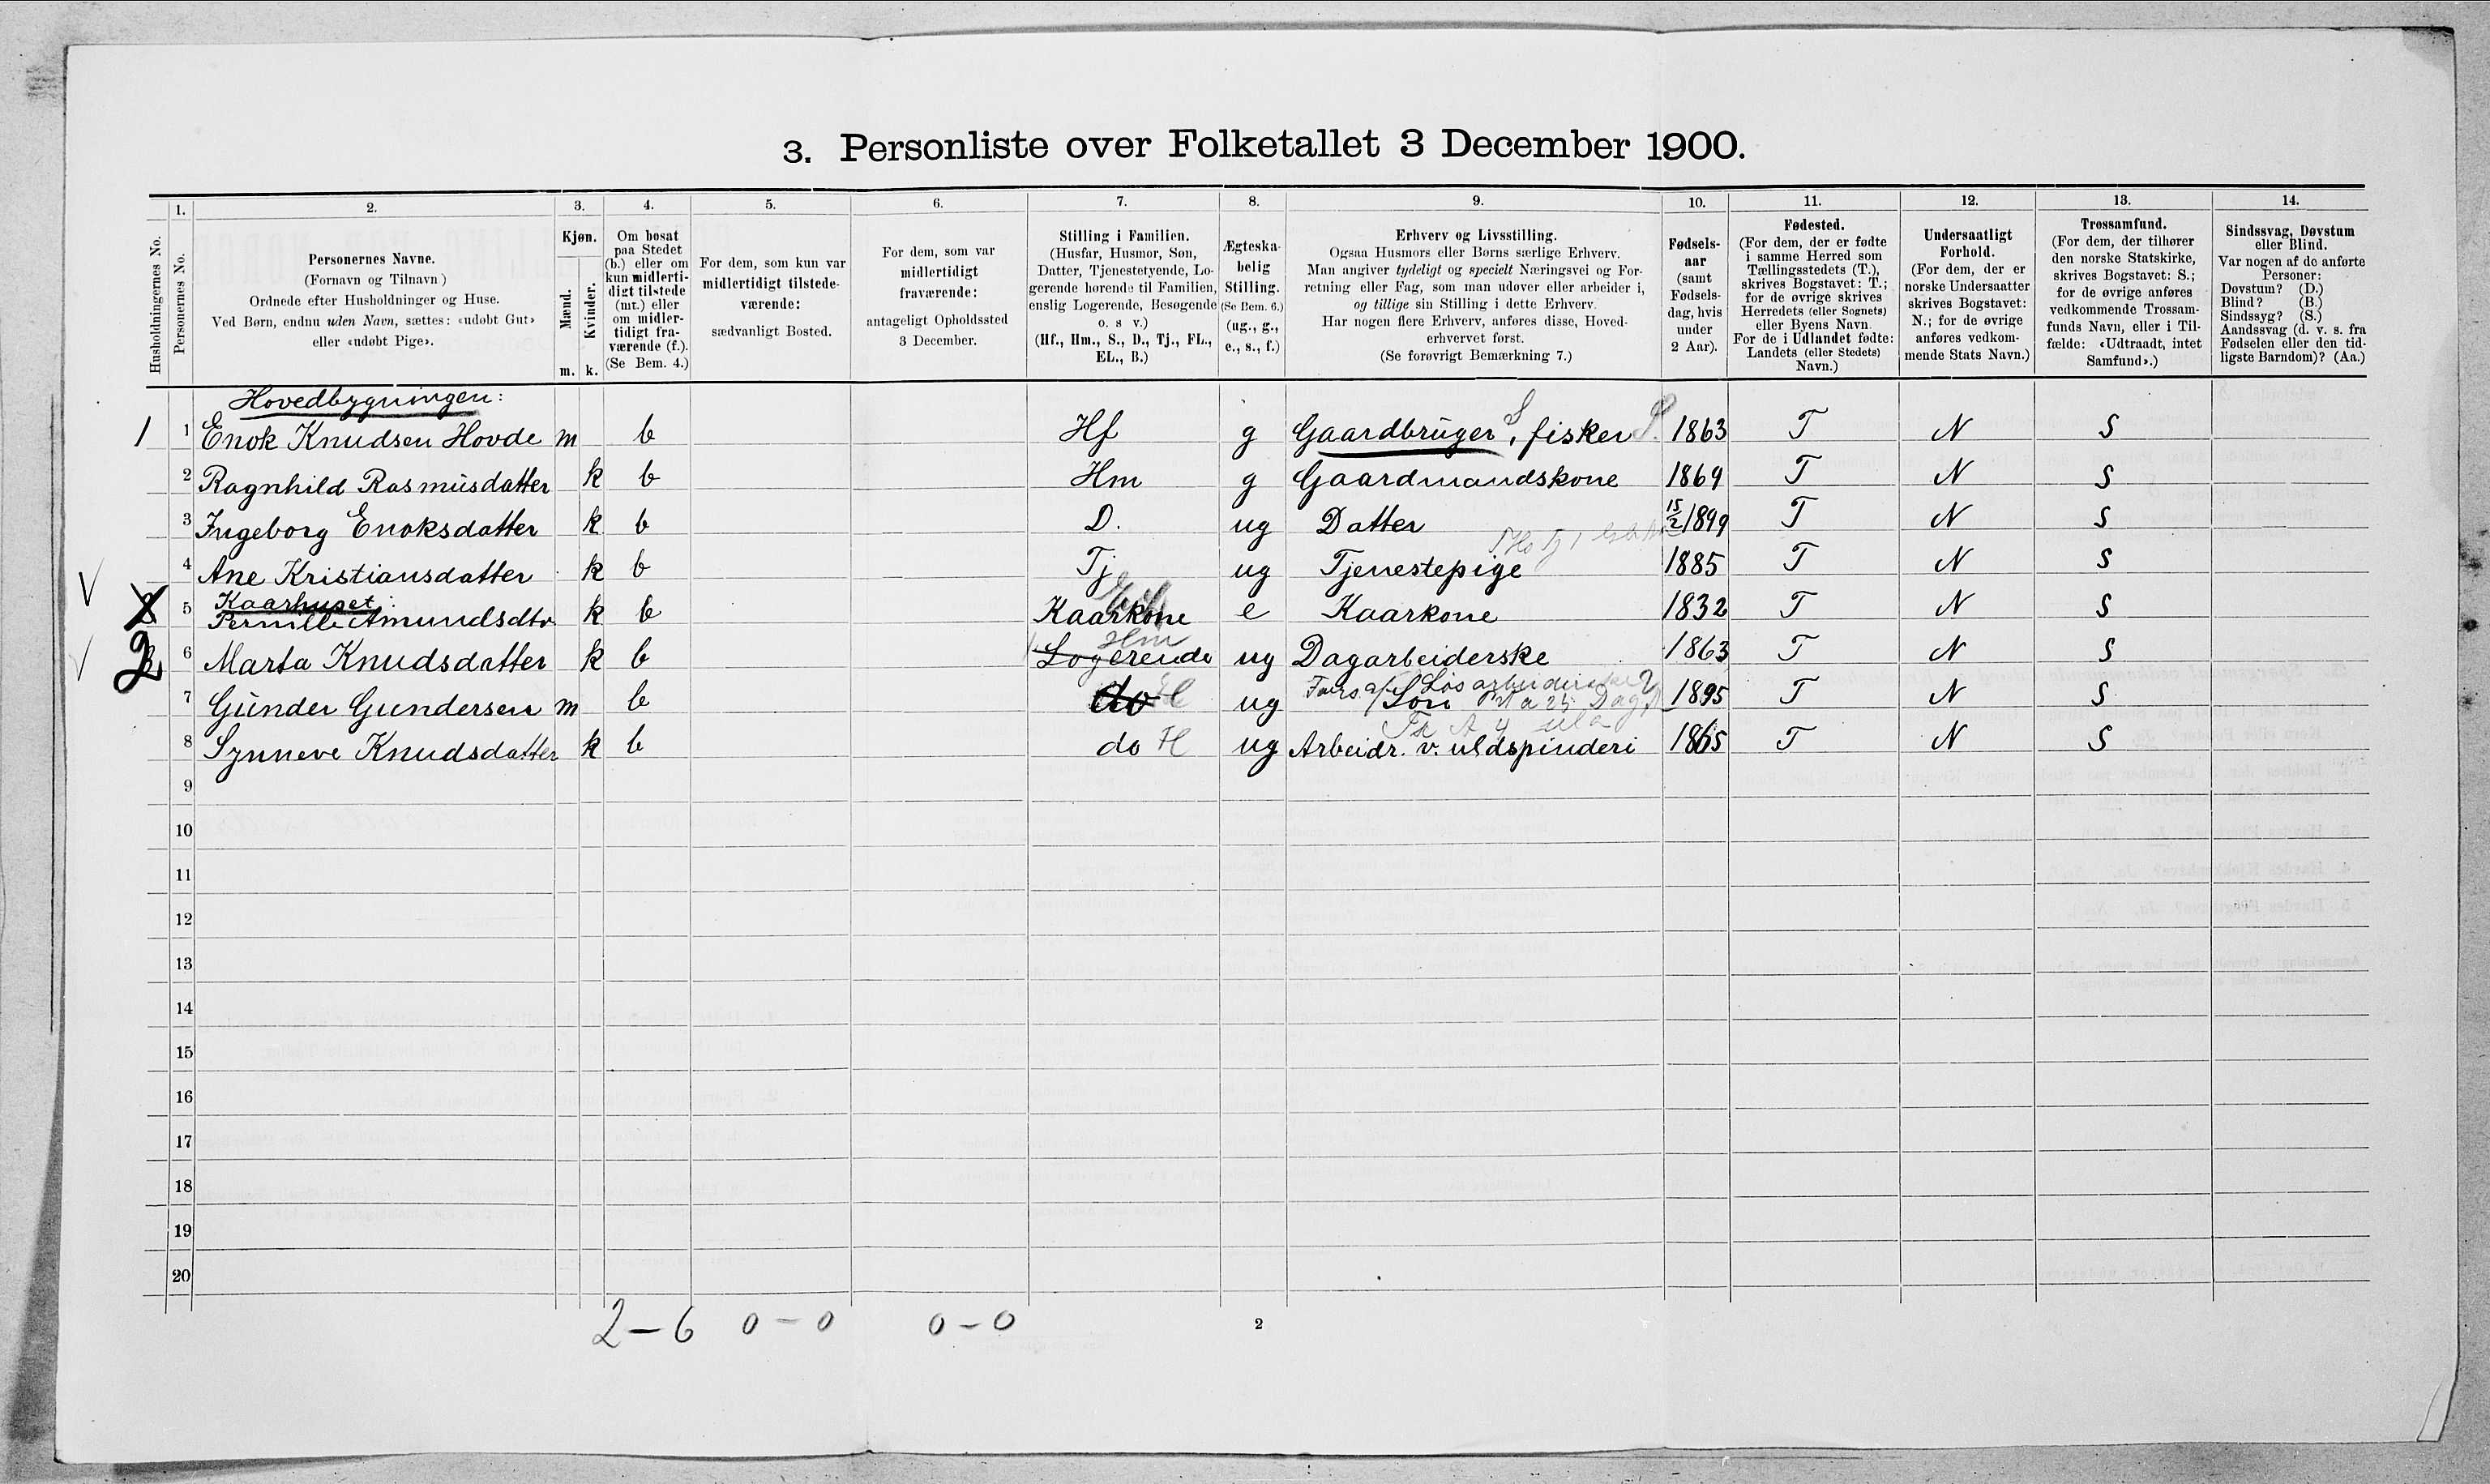 3. Personliste over Folketallet 3 December 1900.
Husholdningernes No.
1.
Personernes No.
2.
Personernes Navne.
(Fornavn og Tilnavn)
Ordnede efter Husholdninger og Huse.
Ved Børn, endnu uden Navn, sættes: «udøbt Gut»
eller «udøbt Pige».
3.
Kjøn.
Mænd.
Kvinder.
m. k.
4.
Om bosat
paa Stedet
(b.) eller om
kun midlerti-
digt tilstede
(mt.) eller
om midler-
tidigt fra-
værende (f.).
(Se Bem. 4.)
5.
For dem, som kun var
midlertidigt tilstede-
værende:
sædvanligt Bosted.
6.
For dem, som var
midlertidigt
fraværende:
antageligt Opholdssted
3 December.
7.
Stilling i Familien.
(Husfar, Husmor, Søn,
Datter, Tjenestetyende, Lo-
gerende hørende til Familien,
enslig Logerende, Besøgende
o. s v.)
(Hf., Hm., S., D., Tj., FL.,
EL., B.)
8.
Ægteska-
belig
Stilling.
(Se Bem. 6.)
(ug., g.,
e., s., f.)
9.
Erhverv og Livsstilling.
Ogsaa Husmors eller Børns særlige Erhverv.
Man angiver tydeligt og specielt Næringsvei og For-
retning eller Fag, som man udøver eller arbeider i,
og tillige sin Stilling i dette Erhverv.
Har nogen flere Erhverv, anføres disse, Hoved-
erhvervet først.
(Se forøvrigt Bemærkning 7.)
10.
Fødsels-
aar
(samt
Fødsels-
dag, hvis
under
2 Aar).
11.
Fødested.
(For dem, der er fødte
i samme Herred som
Tællingsstedets (T.),
skrives Bogstavet: T.;
for de øvrige skrives
Herredets (eller Sognets)
eller Byens Navn.
For de i Udlandet fødte:
Landets (eller Stedets)
Navn.)
12.
Undersaatligt
Forhold.
(For dem, der er
norske Undersaatter
skrives Bogstavet:
N.; for de øvrige
anføres vedkom-
mende Stats Navn.)
13.
Trossamfund.
(For dem, der tilhører
den norske Statskirke,
skrives Bogstavet: S.;
for de øvrige anføres
vedkommende Trossam-
funds Navn, eller i Til-
fælde: «Udtraadt, intet
Samfund».)
14.
Sindssvag, Døvstum
eller Blind.
Var nogen af de anførte
Personer:
Døvstum? (D.)
Blind? (B.)
Sindssyg? (S.)
Aandssvag (d. v. s. fra
Fødselen eller den tid-
ligste Barndom)? (Aa.)
Hovedbygningen:
1 1 Enok Knudsen Hovde m b Hf g Gaardbruger, fisker 1863 T N S
2 Ragnhild Rasmusdatter k b Hm g Gaardmandskone 1869 T N S
3 Ingeborg Enoksdatter k b D. ug Datter 15/2 1899 T N S
4 Ane Kristiansdatter k b Tj ug Tjenestepige 1885 T N S
Kaarhuset:
5 Pernille Amundsdtr k b Kaarkone e Kaarkone 1832 T N S
Hm
2 6 Marta Knudsdatter k b Logerende ug Dagarbeiderske 1863 T N S
7 Gunder Gundersen m b do ug Søn 1895 T N S
8 Synneve Knudsdatter k b do ug Arbeidr. v. uldspinderi 1865 T N S
9
10
11
12
13
14
15
16
17
18
19
20
2 – 6 0 – 0 0 – 0
2